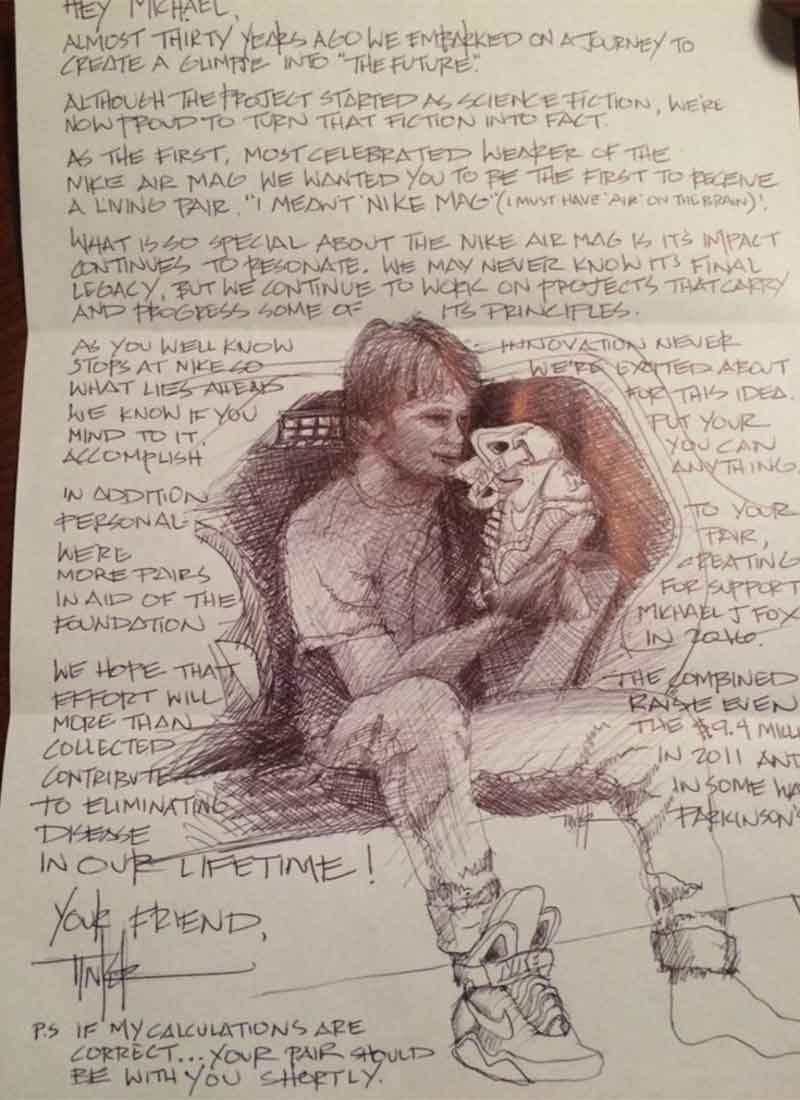 HEY MICHAEL,
ALMOST THIRTY YEARS AGO WE EMBARKED ON A JOURNEY TO
CREATE A GLIMPSE INTO "THE FUTURE".
ALTHOUGH THE PROJECT STARTED AS SCIENCE FICTION, WE'RE
NOW PROUD TO TURN THAT FICTION INTO FACT.
AS THE FIRST, MOST CELEBRATED WEARER OF THE
NIKE AIR MAG WE WANTED YOU TO BE THE FIRST TO RECEIVE
A LIVING PAIR. "I MEANT 'NIKE MAG' (I MUST HAVE 'AIR' ON THE BRAIN)'.
WHAT IS SO SPECIAL ABOUT THE NIKE AIR MAG IS ITS IMPACT
CONTINUES TO RESONATE. WE MAY NEVER KNOW IT'S FINAL
LEGACY, BUT WE CONTINUE TO WORK ON PROJECTS THAT CARRY
AND PROGRESS SOME OF ITS PRINCIPLES.
AS YOU WELL KNOW INNOVATION NEVER
STOPS AT NIKE SO WE'RE EXCITED ABOUT
WHAT LIES AHEAD FOR THIS IDEA.
WE KNOW IF YOU PUT YOUR
MIND TO IT, YOU CAN
ACCOMPLISH ANYTHING.
IN ADDITION TO YOUR
PERSONAL PAIR,
WE'RE CREATING
MORE PAIRS FOR SUPPORT
IN AID OF THE MICHAEL J FOX
FOUNDATION IN 2016.
WE HOPE THAT THE COMBINED
EFFORT WILL RAISE EVEN
MORE THAN THE $9.4 MILLI
COLLECTED IN 2011 AND
CONTRIBUTE IN SOME WA
TO ELIMINATING PARKINSON'S
DISEASE
IN OUR LIFETIME!
YOUR FRIEND,
TINKER
P.S IF MY CALCULATIONS ARE
CORRECT... YOUR PAIR SHOULD
BE WITH YOU SHORTLY.
NIKE
TINKER